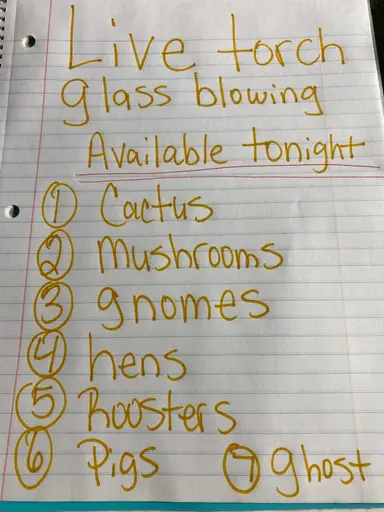 Live torch
glass blowing
Available tonight
1 Cactus
2 Mushrooms
3 gnomes
4 hens
5 Roosters
6 Pigs 7 ghost